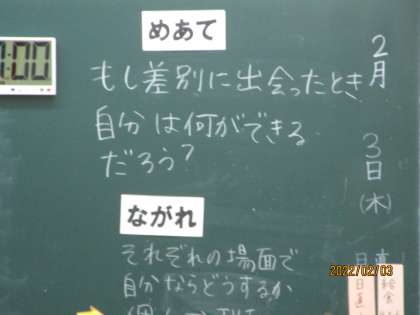 めあて
もし差別に出会ったとき
自分は何ができる
だろう?
ながれ
それぞれの場面で
自分ならどうするか
2月
3日
(木)
:00
日直
日直
給食
2022/02/03